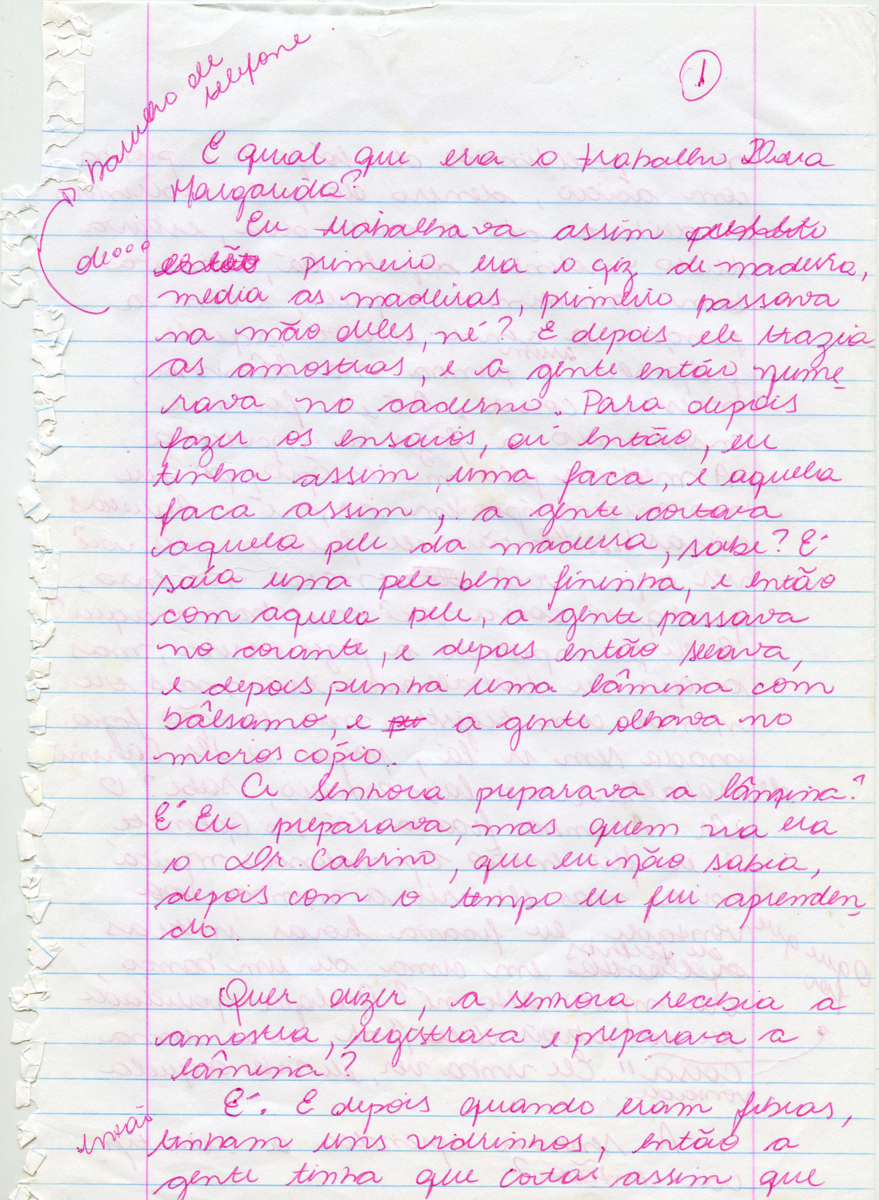 1
barulho de
telefone
E qual que era o trabalho Dona
Margarida?
Eu trabalhava assim
então primeiro era o giz de madeira,
media as madeiras, primeiro passava
na mão deles, né? E depois ele trazia
as amostras, e a gente então nume-
rava no caderno. Para depois
fazer os ensaios, aí então, eu
tinha assim, uma faca, e aquela
faca assim, a gente cortava
aquela pele da madeira, sabe? E
saía uma pele bem fininha, e então
com aquela pele, a gente passava
no corante, e depois então secava,
e depois punha uma lâmina com
bálsamo, e a gente olhava no
microscópio.
A Senhora preparava a lâmina?
É Eu preparava, mas quem via era
o Dr. Cahrino, que eu não sabia,
depois com o tempo eu fui aprenden-
do.
Quer dizer, a senhora recebia a
amostra, registrava e preparava a
lâmina?
então
É. E depois quando eram fibras,
tinham uns vidrinhos, então a
gente tinha que cortar assim que